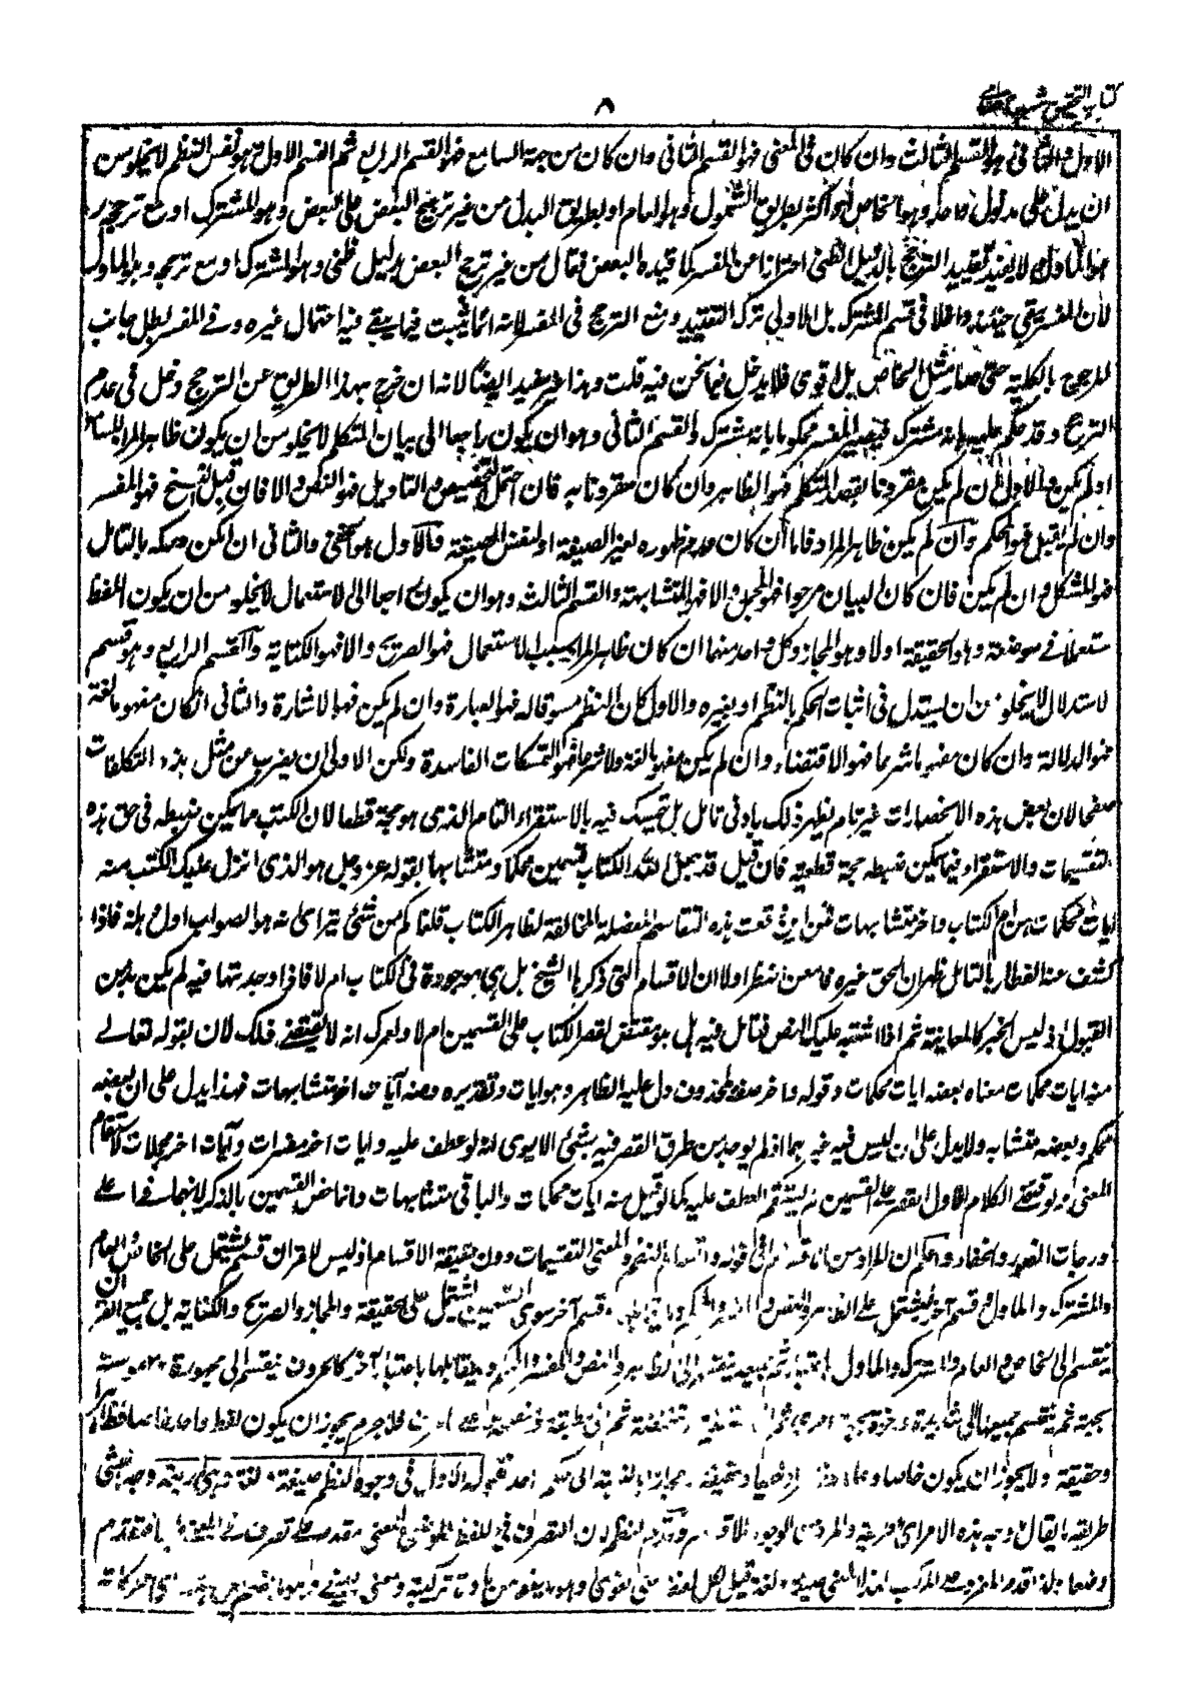 كتاب التحقيق شرح حسامى
٨
الاول والثانى فهو القسم الثالث وان كان فى المعنى فهو القسم الثانى وان كان من جهة السامع فهو القسم الرابع ثم القسم الاول وهو نفس النظم لا يخلو من
ان يدل على مدلول واحد وهو الخاص او اكثر بطريق الشمول وهو العام او بطريق البدل من غير ترجيح البعض على البعض وهو المشترك او مع ترجيحه
هو الماول ولا يفيد تقييد الترجيح بالدليل الظنى احترازا عن المفسر كما قيده البعض فقال من غير ترجح البعض بدليل ظنى وهو المشترك او مع ترجحه وهو الماول
لان المفسر يبقى حينئذ داخلا فى قسم المشترك بل الاولى ترك التقييد ومنع الترجح فى المفسر لانه انما يثبت فيما يبقى فيه احتمال غيره وفى المفسر بطل جانب
المرجوح بالكلية حتى صار مثل الخاص بل اقوى فلا يدخل فيما نحن فيه قلت وهذا غير مفيد ايضا لانه ان خرج بهذا الطريق عن الترجح دخل فى عدم
الترجح وقد حكم عليه بانه مشترك فيصير المفسر محكوما بانه مشترك والقسم الثانى وهو ان يكون راجعا الى بيان المتكلم لا يخلو من ان يكون ظاهر المراد للسامع
او لم يكن والاول ان لم يكن مقرونا بقصد المتكلم فهو الظاهر وان كان مقرونا به فان احتمل التخصيص والتاويل فهو النص والا فان قبل النسخ فهو المفسر
وان لم يقبل فهو المحكم وان لم يكن ظاهر المراد فاما ان كان عدم ظهوره لغير الصيغة او لنفس الصيغة فالاول هو الخفى والثانى ان امكن دركه بالتامل
فهو المشكل وان لم يكن فان كان البيان مرجوا فهو المجمل والا فهو المتشابه والقسم الثالث وهو ان يكون راجعا الى الاستعمال لا يخلو من ان يكون اللفظ
مستعملا فى موضوعه وهو الحقيقة او لا وهو المجاز وكل واحد منهما ان كان ظاهر المراد بسبب الاستعمال فهو الصريح والا فهو الكناية والقسم الرابع وهو قسم
الاستدلال لا يخلو من ان يستدل فى اثبات الحكم بالنظم او بغيره والاول ان كان النظم مسوقا له فهو العبارة وان لم يكن فهو الاشارة والثانى ان كان مفهوما لغة
فهو الدلالة وان كان مفهوما شرعا فهو الاقتضاء وان لم يكن مفهوما لغة ولا شرعا فهو التمسكات الفاسدة ولكن الاولى ان يضرب عن مثل هذه التكلفات
صفحا لان بعض هذه الانحصارات غير تام يظهر ذلك بادنى تامل بل تمسك فيه بالاستقراء التام الذى هو حجة قطعا لان الكتاب مما يمكن ضبطه فى حق هذه
التقسيمات والاستقراء فيما يمكن ضبطه حجة قطعية فان قيل قد جعل الله الكتاب قسمين محكما ومتشابها بقوله عز وجل هو الذى انزل عليك الكتب منه
ايات محكمات هن ام الكتاب واخر متشابهات فمن اين وقعت هذه التقاسيم المفضلة المخالفة لظاهر الكتاب قلنا كم من شئ يترائ انه هو الصواب اول وهلة فاذا
كشف عنه الغطاء بالتامل ظهر ان الحق غيره فامعن النظر اولا ان الاقسام التى ذكرها الشيخ بل هى موجودة فى الكتاب ام لا فاذا وجدتها فيه لم يكن بد من
القبول اذ ليس الخبر كالمعاينة ثم اذا اشتبه عليك النص فتامل فيه هل هو مقتض لقصر الكتاب على القسمين ام لا ولعمرك انه لا يقتضى ذلك لان قوله تعالى
منه ايات محكمات معناه بعضه ايات محكمات وقوله واخر صفة لمحذوف دل عليه الظاهر وهو ايات وتقديره ومنه آيات اخر متشابهات فهذا يدل على ان بعضه
محكم وبعضه متشابه ولا يدل على ان ليس فيه غيرهما اذ لم يوجد من طرق القصر فيه شئ الا يرى انه لو عطف عليه وايات اخر مفسرات وآيات اخر مجملات لاستقام
المعنى ولو اقتضى الكلام الاول القصر على القسمين لم يستقم العطف عليه كما لو قيل منه ايات محكمات والباقى متشابهات وانما خص القسمين بالذكر لانهما على
درجات الظهور والخفاء واعلم ان المراد من الاقسام فى قوله واقسام النظم والمعنى التقسيمات دون حقيقة الاقسام اذ ليس للقران قسم يشتمل على الخاص والعام
والمشترك والماول وقسم آخر يشتمل على الظاهر والنص والمفسر والمحكم وقسم آخر سوى القسمين يشتمل على الحقيقة والمجاز والصريح والكناية بل جميع القران
ينقسم الى الخاص والعام والمشترك والماول باعتبار ثم جميعه ينقسم الى الظاهر والنص والمفسر والمحكم ويقابلها باعتبار آخر كالحروف ينقسم الى مجهورة ومهموسة
بجهة ثم ينقسم جميعها الى شديدة ورخوة بجهة اخرى ثم الى مستعلية ومنخفضة ثم الى مطبقة ومنفتحة فلا جرم يجوز ان يكون لفظ واحد خاصا ظاهرا
وحقيقة ولا يجوز ان يكون خاصا وعاما او ظاهرا وخفيا وحقيقة ومجازا بالنسبة الى حكم واحد قوله الاول فى وجوه النظم صيغة ولغة وهى اربعة وجه الشئ
طريقه يقال ما وجه هذا الامر اى طريقه والمراد من الوجوه الاقسام وقدم النظم لان التصرف فى اللفظ الموضوع لمعنى مقدم على تصرف فى المعنى